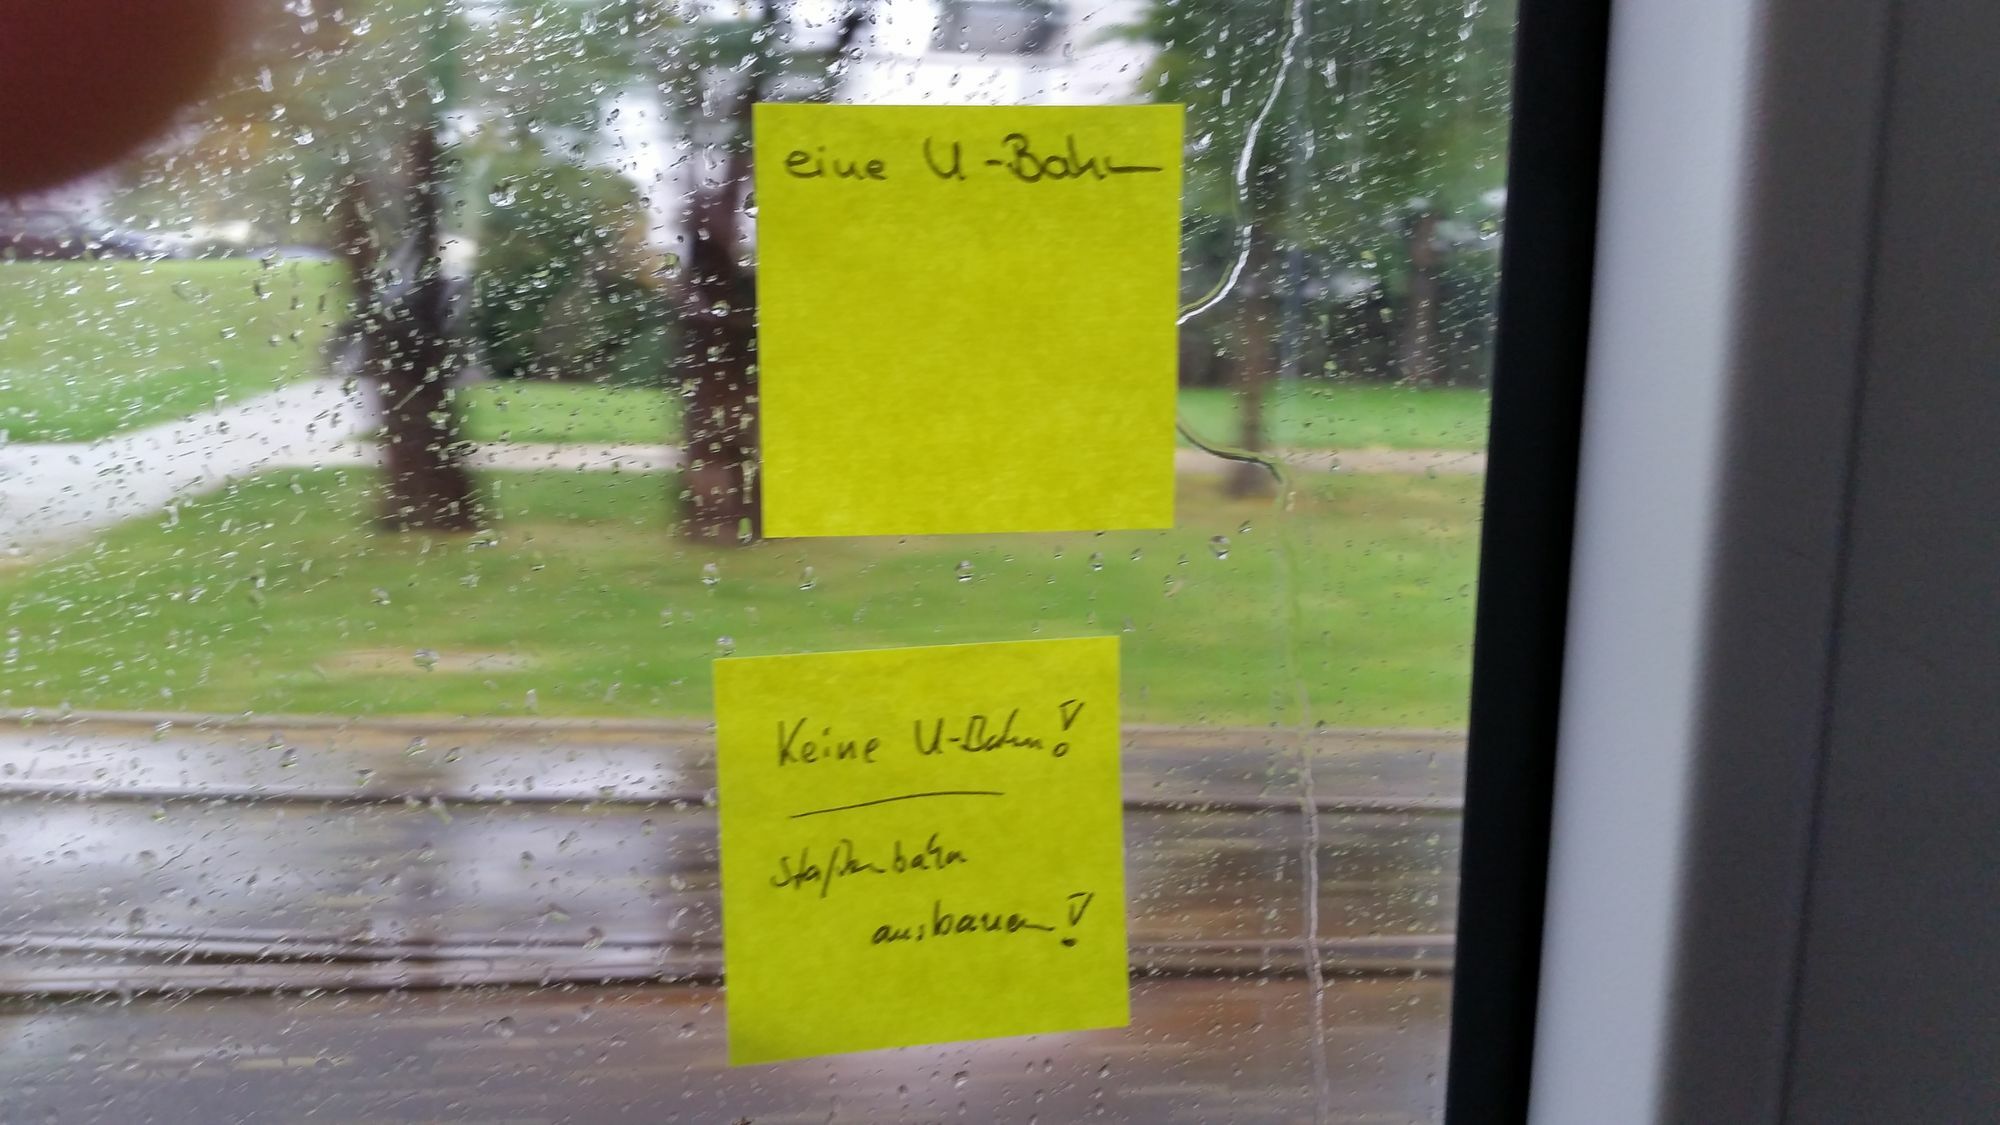 eine U-Bahn
Keine U-Bahn!
Staßenbahn
ausbauen!